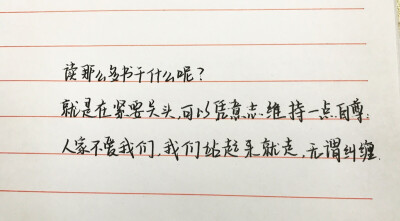 读那么多书干什么呢?
就是在紧要关头,可以凭意志维持一点自尊:
人家不爱我们,我们站起来就走,无谓纠缠.